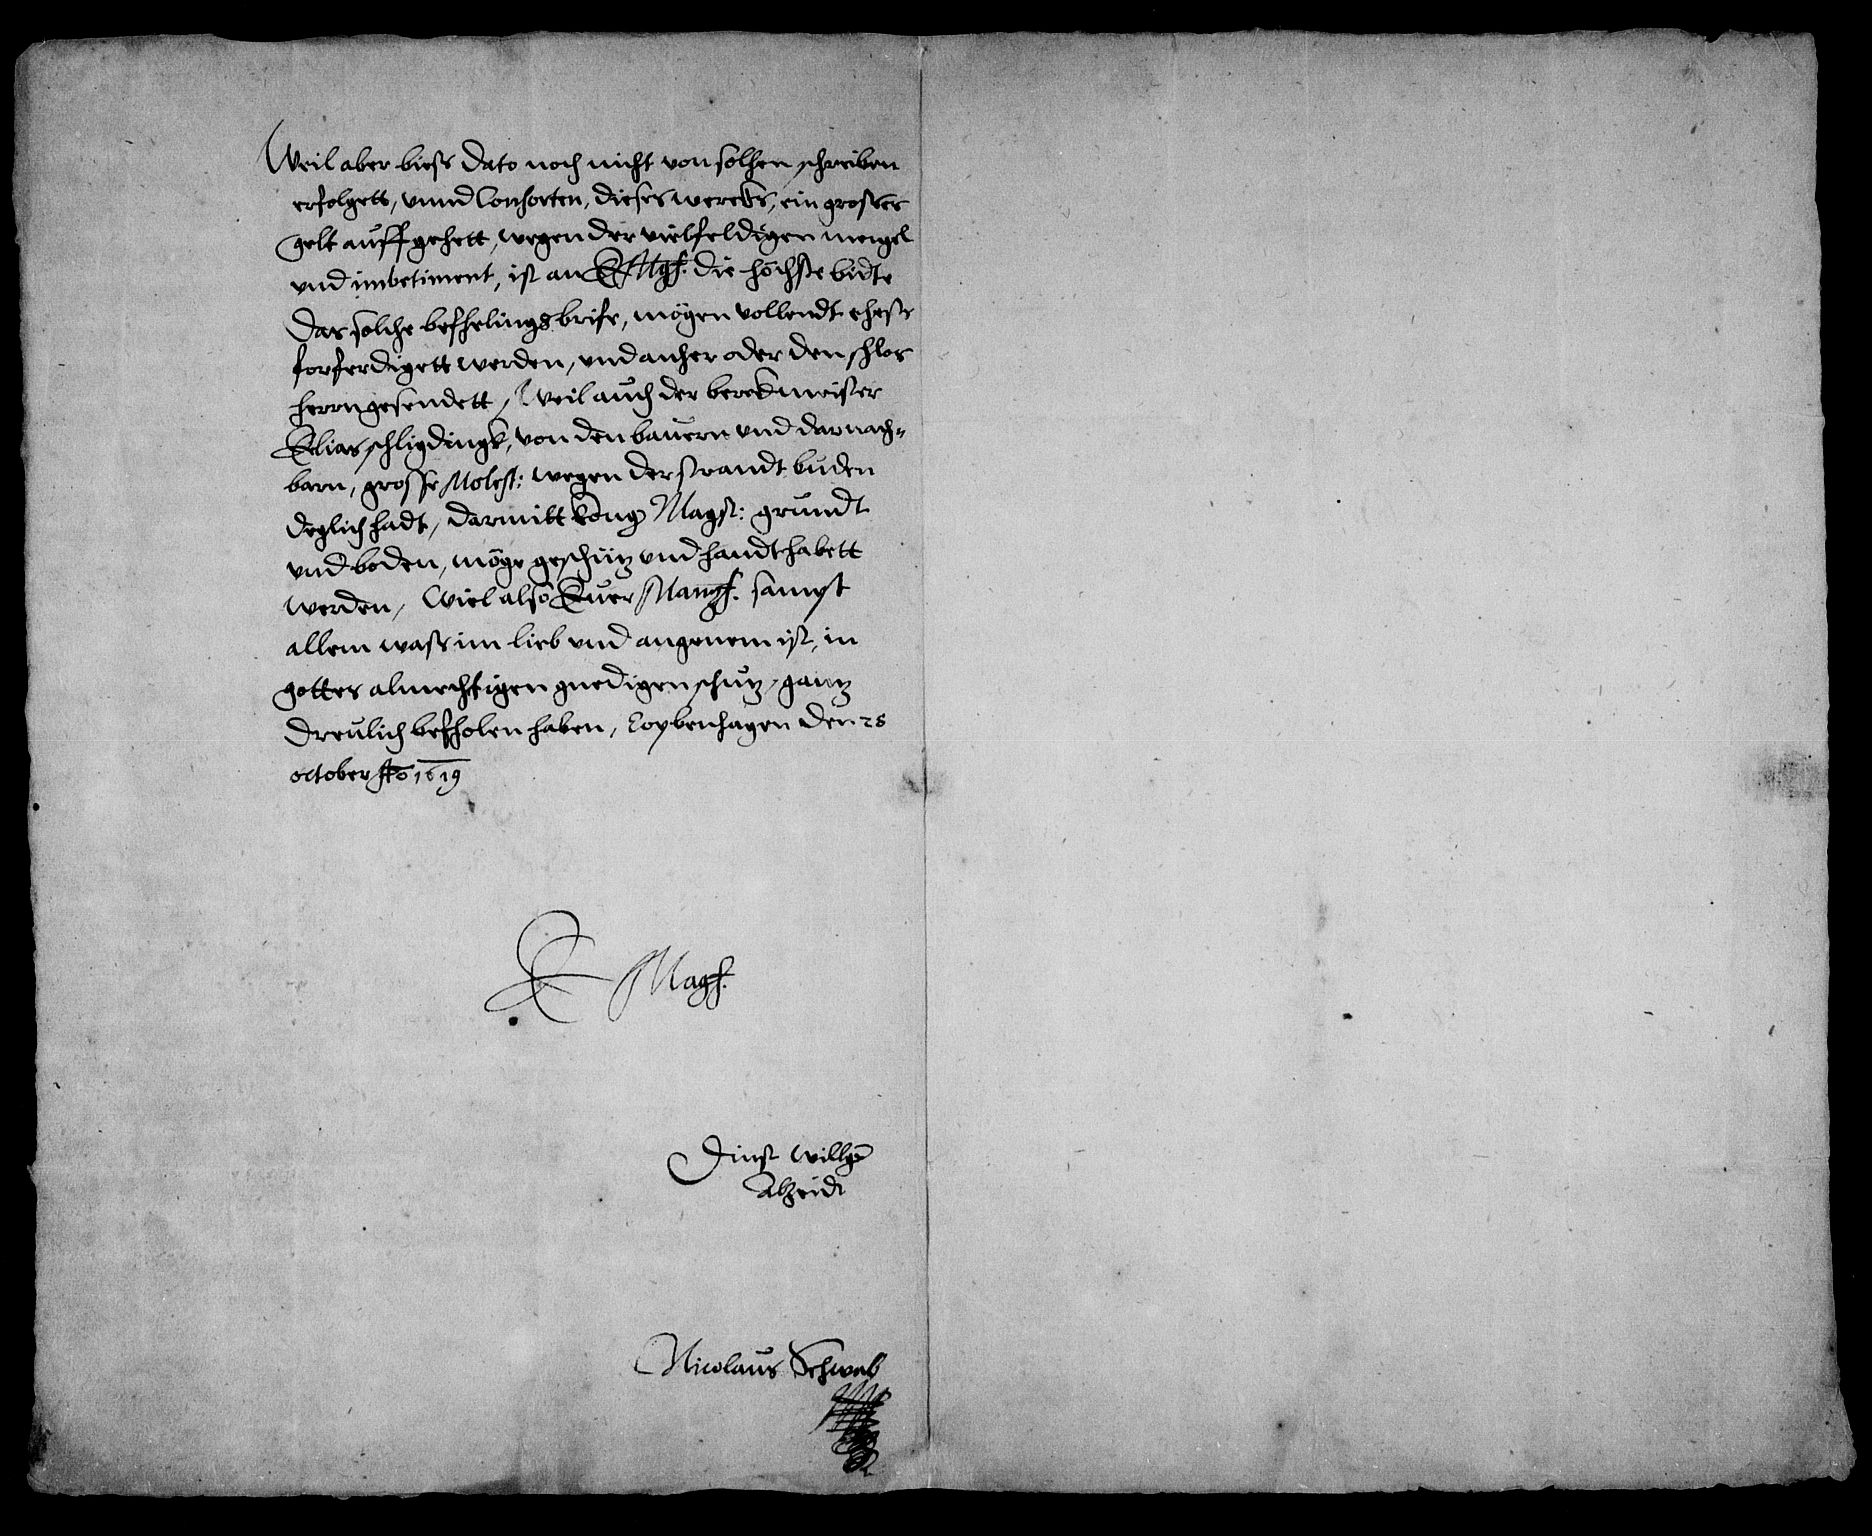 Weil aber biess Dato noch nicht von solhen schreiben
erfolgett, unnd Consorten, dieses wercks, ein grosses
gelt auff gehett, wegen der vielfeldigen mengel
und imbetiment, ist an E Mgf. die höchste bidte
Das solche beffhelings brife, mögen vollendt ehest
forferdigett werden, und anher oder den schlos
herrn gesendett, Weil auch der berckmeister
Elias schligdingk, von den bauern und darnach=
barn, grosse Molest: wegen der strandt buden
deglich hadt, darmitt köng Magst: grundt
und boden, möge geschütz und handthabett
werden, Wiel also Euer Mangf. sampt
allem wass im lieb und angenem ist, in
gottes almechtigen gnedigen schutz, gantz
dreulich beffholen haben, Copbenhagen den 28
october Ao 1619
E Magf.
Dinst willg
Alzeidt
Nicolaus Schwab